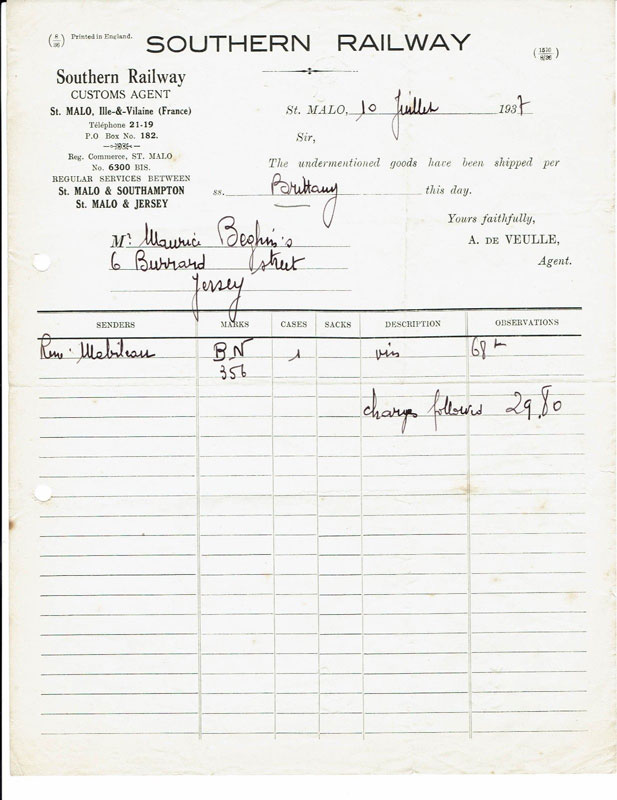 (8/36) Printed in England.
SOUTHERN RAILWAY
(1570 8/36)
Southern Railway
CUSTOMS AGENT
St. MALO, Ille-&-Vilaine (France)
Téléphone 21-19
P.O Box No. 182.
Reg. Commerce, ST. MALO
No. 6300 BIS.
REGULAR SERVICES BETWEEN
St. MALO & SOUTHAMPTON
St. MALO & JERSEY
St. MALO, 10 Juillet 1937
Sir,
The undermentioned goods have been shipped per
ss. Brittany this day.
Yours faithfully,
A. DE VEULLE,
Agent.
Mr Maurice Beghin's
6 Burrard street
Jersey
SENDERS MARKS CASES SACKS DESCRIPTION OBSERVATIONS
René Mabileau BN 1 vin 68 k
356
charges follows 29.80